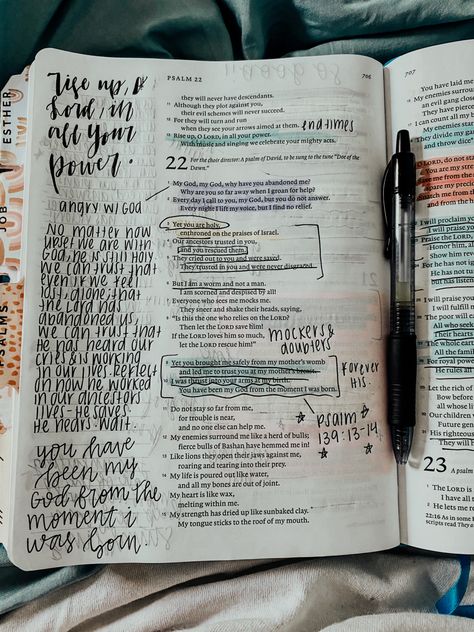 PSALM 22
706
Rise up,
Lord, in
all your
power.
angry w/ God
No matter how
upset we are with
God, he is still holy.
we can trust that
even if we feel
lost, alone, that
the Lord had
abandoned us,
we can trust that
He has heard our
cries & is working
in our lives. Reflect
on how he worked
in our ancestors
lives - He saves.
He hears. wait.
you have
been my
God from the
moment i
was born.
they will never have descendants.
11 Although they plot against you,
their evil schemes will never succeed.
12 For they will turn and run
when they see your arrows aimed at them.
end times
13 Rise up, O LORD, in all your power.
With music and singing we celebrate your mighty acts.
22 For the choir director: A psalm of David, to be sung to the tune "Doe of the
Dawn."
1 My God, my God, why have you abandoned me?
Why are you so far away when I groan for help?
2 Every day I call to you, my God, but you do not answer.
Every night I lift my voice, but I find no relief.
3 Yet you are holy,
enthroned on the praises of Israel.
4 Our ancestors trusted in you,
and you rescued them.
5 They cried out to you and were saved.
They trusted in you and were never disgraced.
6 But I am a worm and not a man.
I am scorned and despised by all!
7 Everyone who sees me mocks me.
They sneer and shake their heads, saying,
8 "Is this the one who relies on the LORD?
Then let the LORD save him!
If the LORD loves him so much,
let the LORD rescue him!"
mockers &
doubters
9 Yet you brought me safely from my mother's womb
and led me to trust you at my mother's breast.
10 I was thrust into your arms at my birth.
You have been my God from the moment I was born.
Forever
His.
11 Do not stay so far from me,
for trouble is near,
and no one else can help me.
Psalm
139:13-14
12 My enemies surround me like a herd of bulls;
fierce bulls of Bashan have hemmed me in!
13 Like lions they open their jaws against me,
roaring and tearing into their prey.
14 My life is poured out like water,
and all my bones are out of joint.
My heart is like wax,
melting within me.
15 My strength has dried up like sunbaked clay.
My tongue sticks to the roof of my mouth.
ESTHER
JOB
PSALMS
707
You have laid me
16 My enemies surround
an evil gang close
17 I can count all my b
My enemies stare
18 They divide my
and throw dice
19 O LORD, do not
20
21
22 I will proclaim
I will praise
23 Praise the LORD
Honor him,
Show him
24 For he has not
He has not
25 I will praise
I will fulfill
26 The poor will
All who
Their hearts
27 The whole
All the
28 For royal power
He rules all
29 Let the rich
Bow before
all whose
30 Our children
Future gener
31 His righteous
They will
23
1 The LORD is
I have
2 He lets me
22:16 As in some
scripts read They